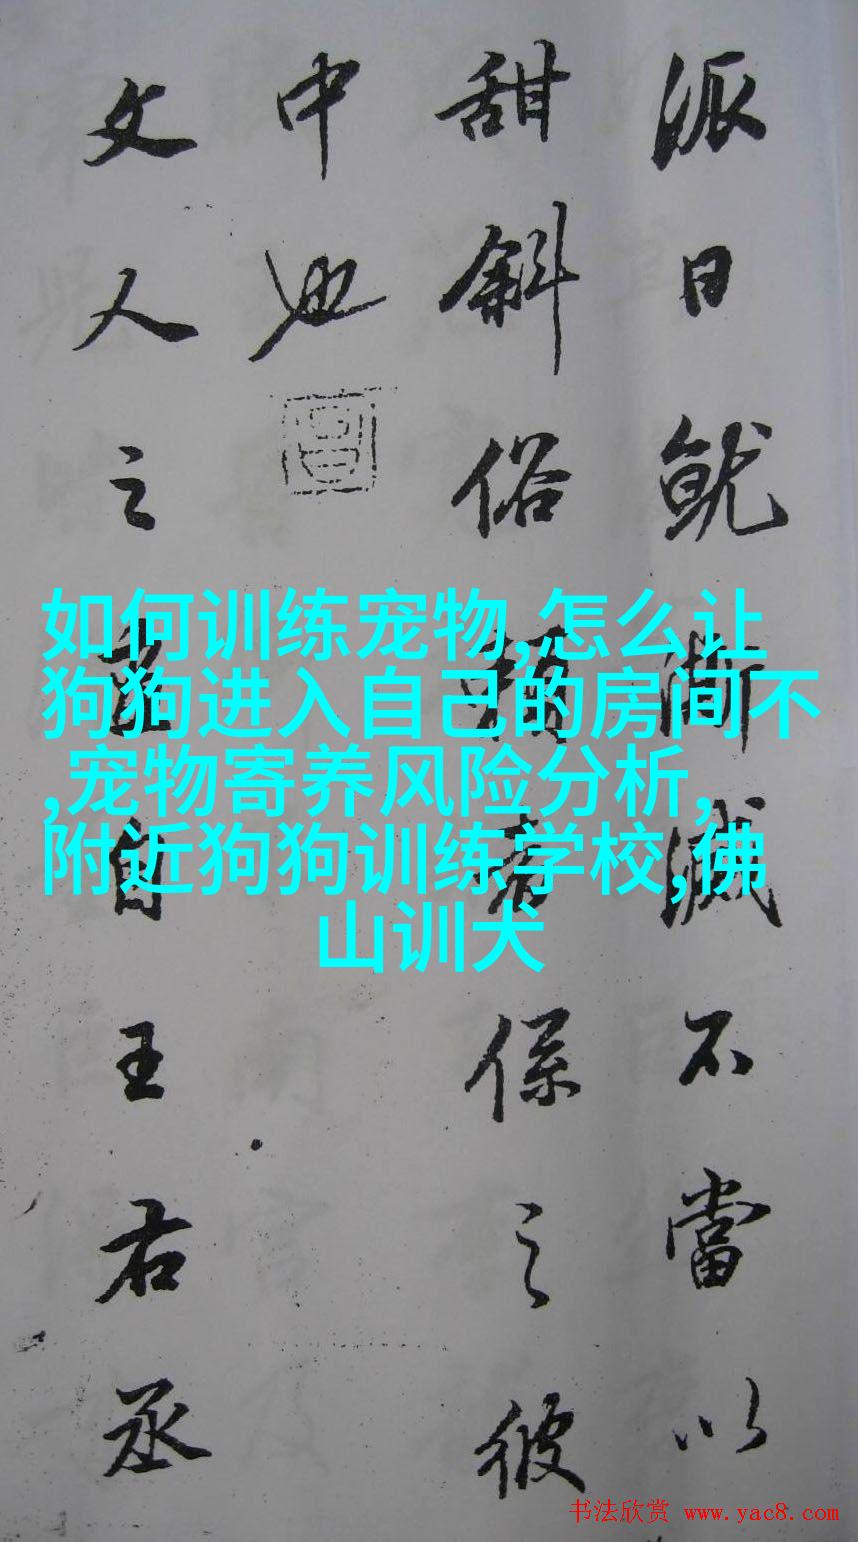 派日就滅不當以
甜斜俗者係之彼
中也
文人之畫自王右丞
如何训练宠物,怎么让
狗狗进入自己的房间不
,宠物寄养风险分析,
附近狗狗训练学校,佛
山训犬
书法欣赏 www.yac8.com